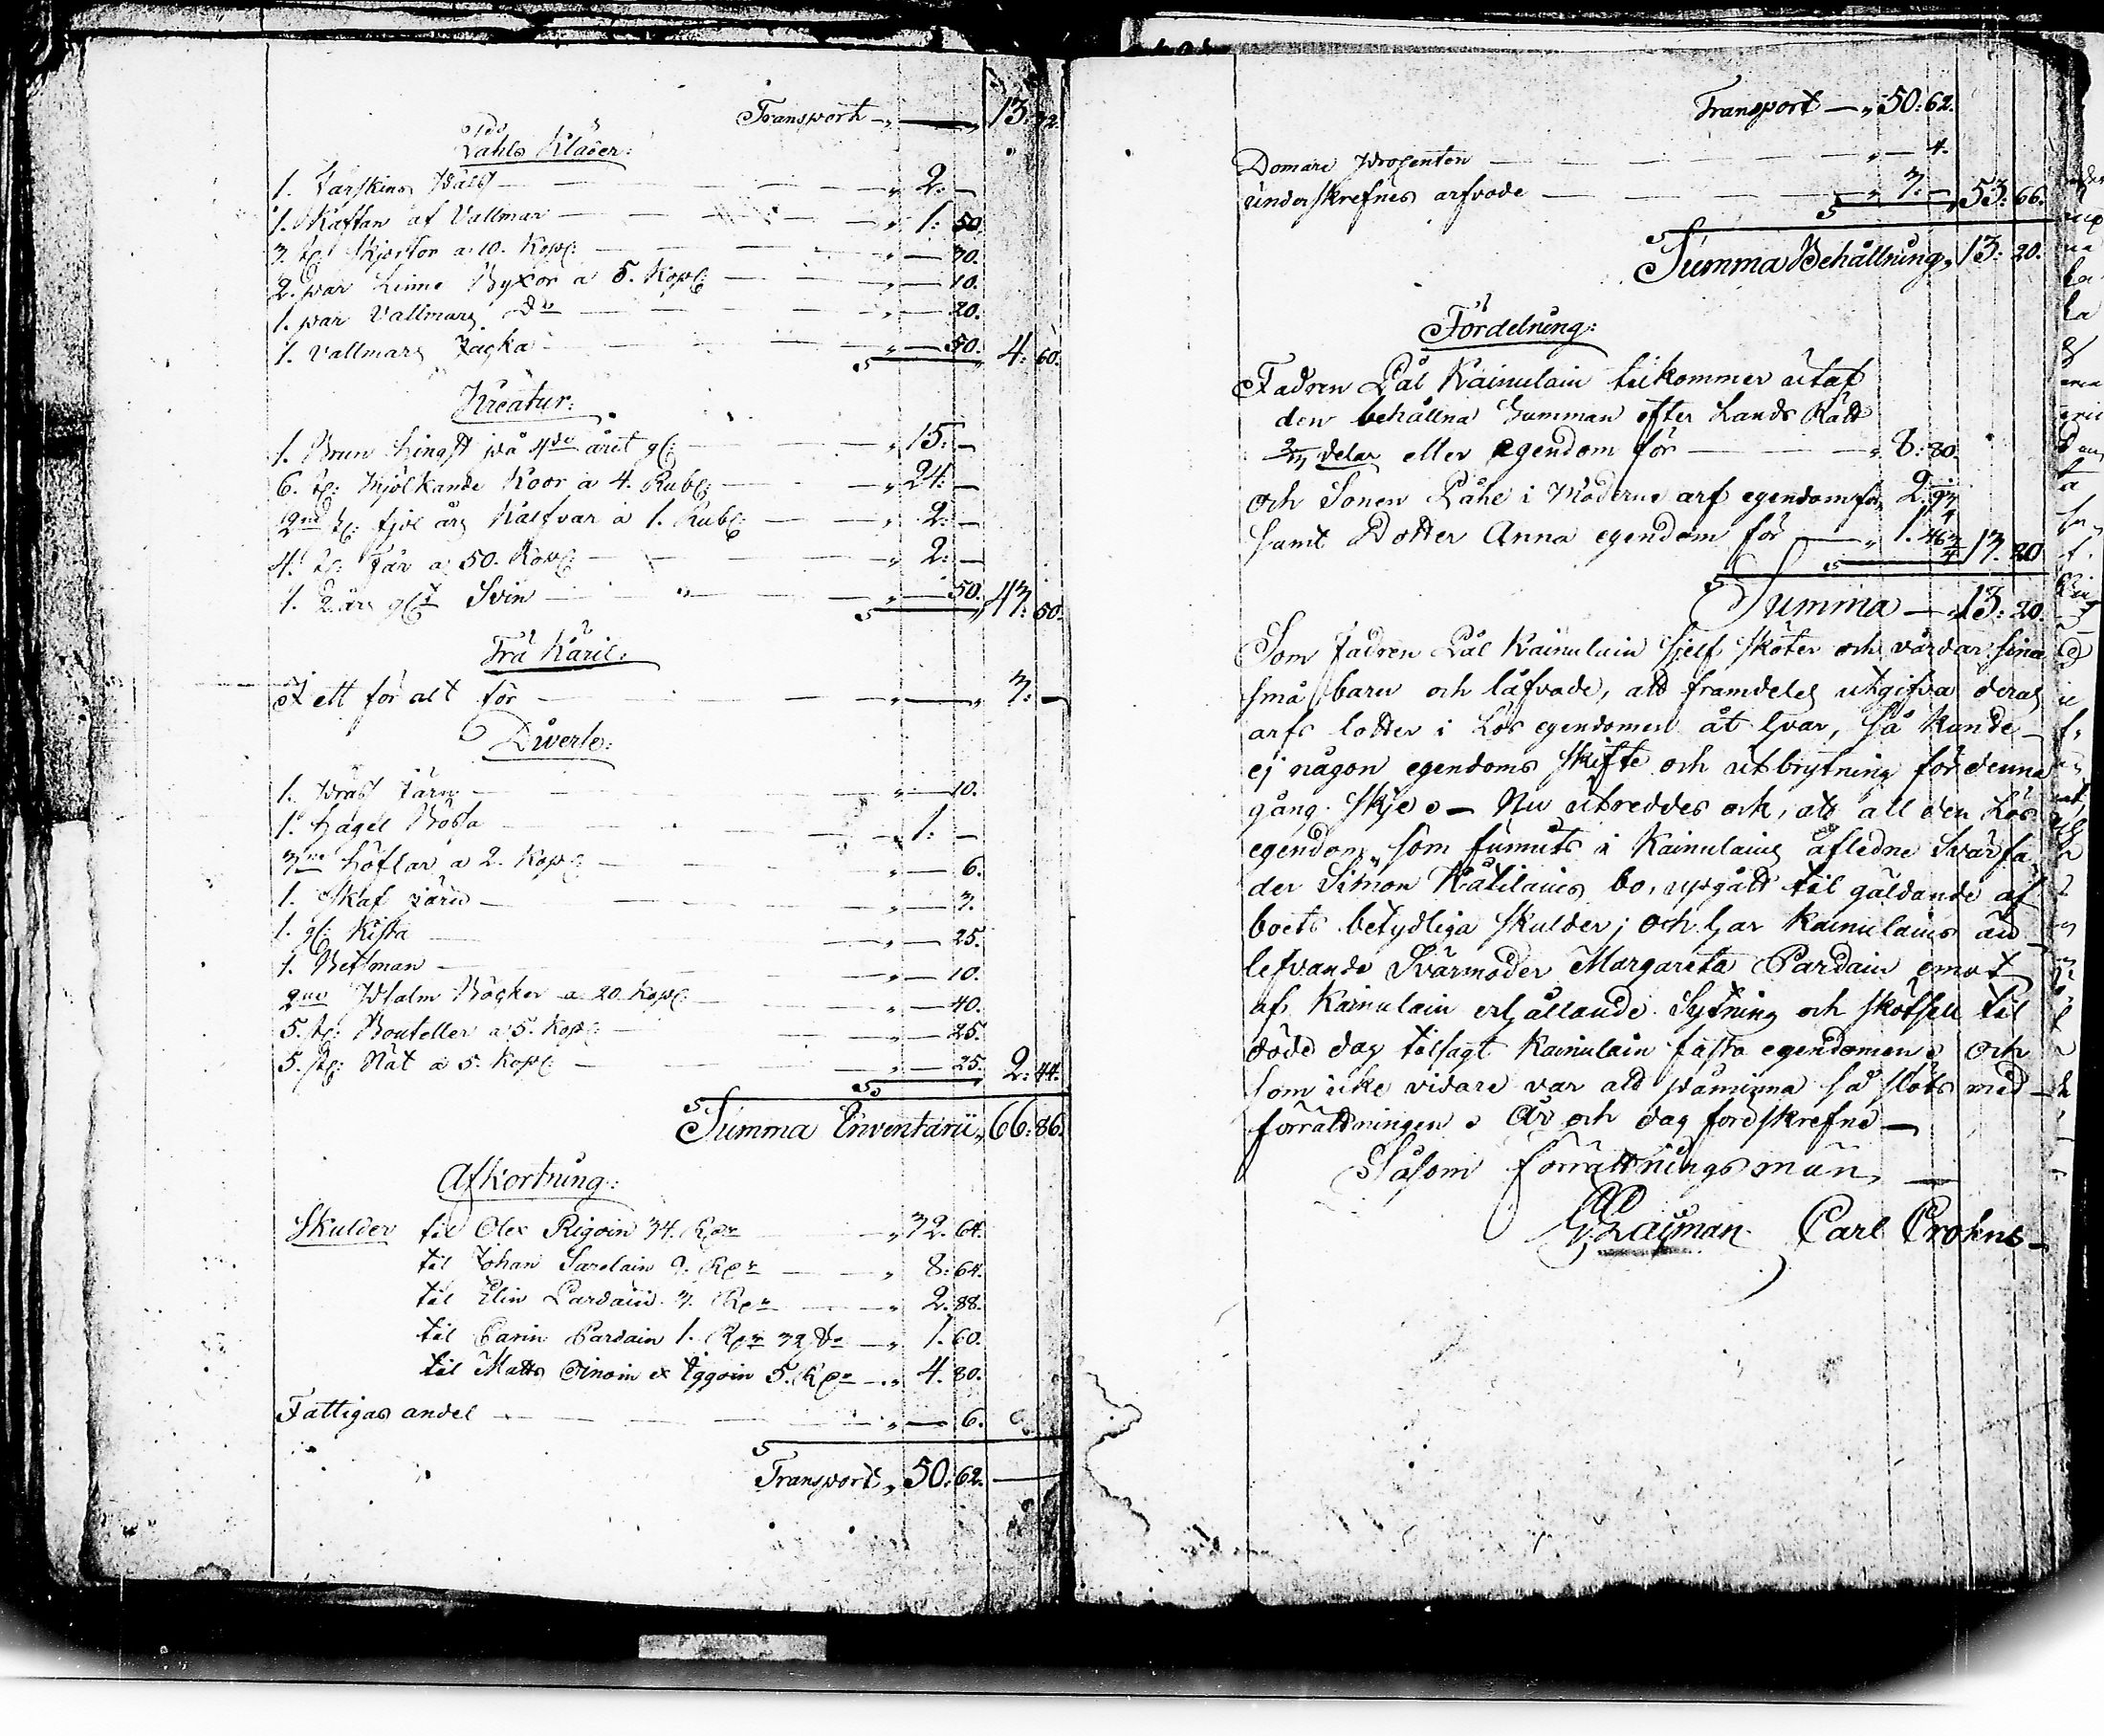 Transport — „ — „ 13: 32.
Påhls Kläder:
1. Fårskins Päls — „ 2: —
1. Kaftan af Vallmar — „ 1: 50.
3. st: Skjortor a 10. Kop: — „ — 30.
2. par Linne Byxor a 5. Kop: — „ — 10.
1. par Vallmars Do — „ — 20.
1. Vallmars Jacka — „ — 50. 4: 60.
Kreatur:
1. Brun Hingst på 4de året gl: — „ 15: —
6. st: Mjölkande Koor a 4. Rub: — „ 24: —
2ne st: fjol års Kalfvar a 1. Rub: — „ 2: —
4. st: Får a 50. Kop: — „ 2: —
1. 2 års glt Svin — „ — 50. 43: 50.
Trä Käril:
I ett för alt för — „ — „ 3: —
Diverse:
1. Järn — „ — 10.
1. Hagel Bössa — „ 1: —
3ne Höflar a 2. Kop: — „ — 6.
1. Skaf järn — „ — 3.
1. gl: Kista — „ — 25.
1. Betsman — „ — 10.
2ne Psalm Böcker a 20 Kop: — „ — 40.
5. st: Bouteller a 5. Kop: — „ — 25.
5. st: Nät a 5. Kop: — „ — 25. 2: 44.
Summa Inventarii „ 66: 86.
Afkortning:
Skulder til Olex Rigoin 34. Rdr — „ 32. 64.
til Johan Sarelain 9. Rdr — „ 8: 64.
til Elin Pardain 3. Rdr — „ 2. 88.
til Carin Pardain 1. Rdr 32 — „ 1. 60.
til Matts Oinoin ex Iggoin 5. Rdr — „ 4. 80.
Fattigas andel — „ — 6.
Transport „ 50: 62. —
Transport — „ 50: 62.
Domare Prosenten — „ — 4.
underskrefnes arfvode — „ 3. — 53: 66.
Summa Behållning „ 13: 20.
Fördelning:
Fadren Pål Kainulain tilkommer utaf
den behållna Summan efter Lands Rätt
2/3 delar eller egendom för — „ 8: 80.
och Sonen Påhl i Möderne arf egendom för „ 2. 93
samt Dotter Anna egendom för — „ 1. 46 13. 20
Summa — „ 13: 20.
Som Fadren Pål Kainulain sjelf sköter och vårdar sina
små barn och låfvade, att framdeles utgifva deras
arfs lotter i Lös egendomen åt hvar, så kunde
ej någon egendoms skifte och utbrytning för denna
gång skje. — Nu utreddes och, att all den Lös
egendom, som funnits i Kainulains aflednе Svärfa-
der Simon Kätilains bo, upgått til gäldande af
boets betydliga skulder; och har Kainulains än
lefvande Svärmoder Margareta Pardain emot
af Kainulain erhållande Sytning och skötsell til
döde dag tilsagt Kainulain fasta egendomen. och
som icke vidare var att påminna så slöts med
förrättningen. År och dag föreskrefne —
Såsom förrättningsmän, —
Carl Crohns —